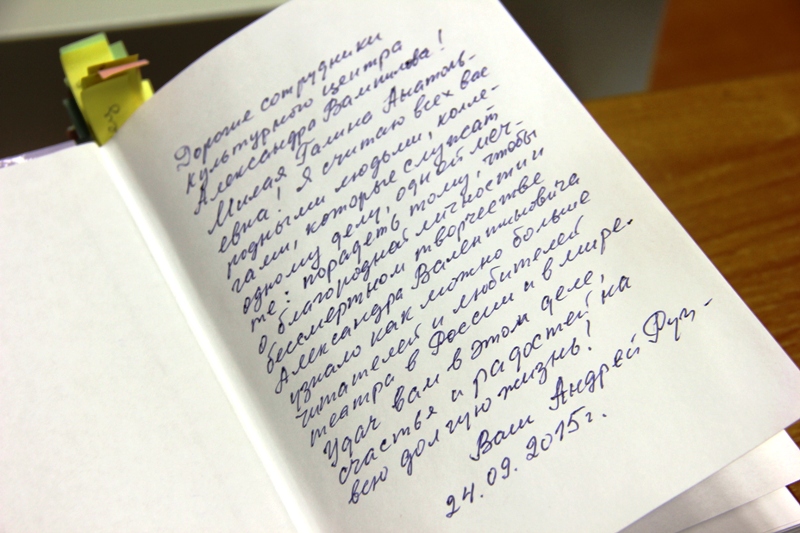 Дорогие сотрудники
культурного центра
Александра Вампилова!
Милая Галина Анатоль-
евна! Я считаю всех вас
родными людьми, колле-
гами, которые служат
одному делу, одной меч-
те: порадеть тому, чтобы
о благородной личности и
бессмертном творчестве
Александра Валентиновича
узнало как можно больше
читателей и любителей
театра в России и в мире.
Удач вам в этом деле,
счастья и радостей на
всю долгую жизнь!
Ваш Андрей Руз-
24.09.2015г.